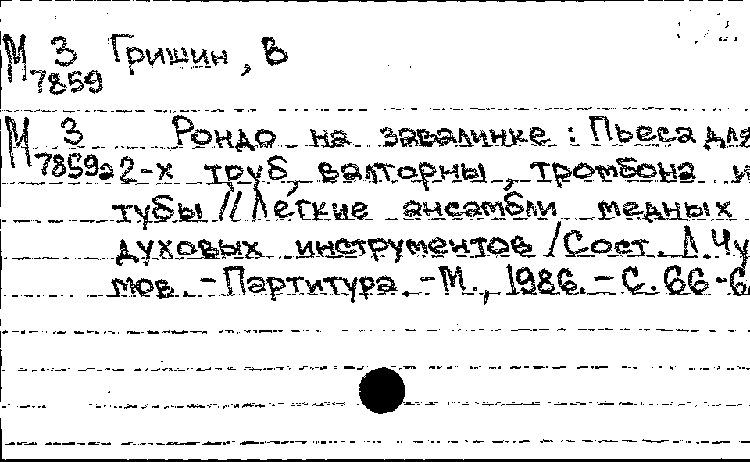 М З Гришин, В
7859
М З Рондо на завалинке: Пьеса для
7859а 2-х труб, валторны, тромбона и
тубы // Лёгкие ансамбли медных
духовых инструментов / Сост. Л. Чу
мов. - Партитура. - М., 1986. - С. 66-6